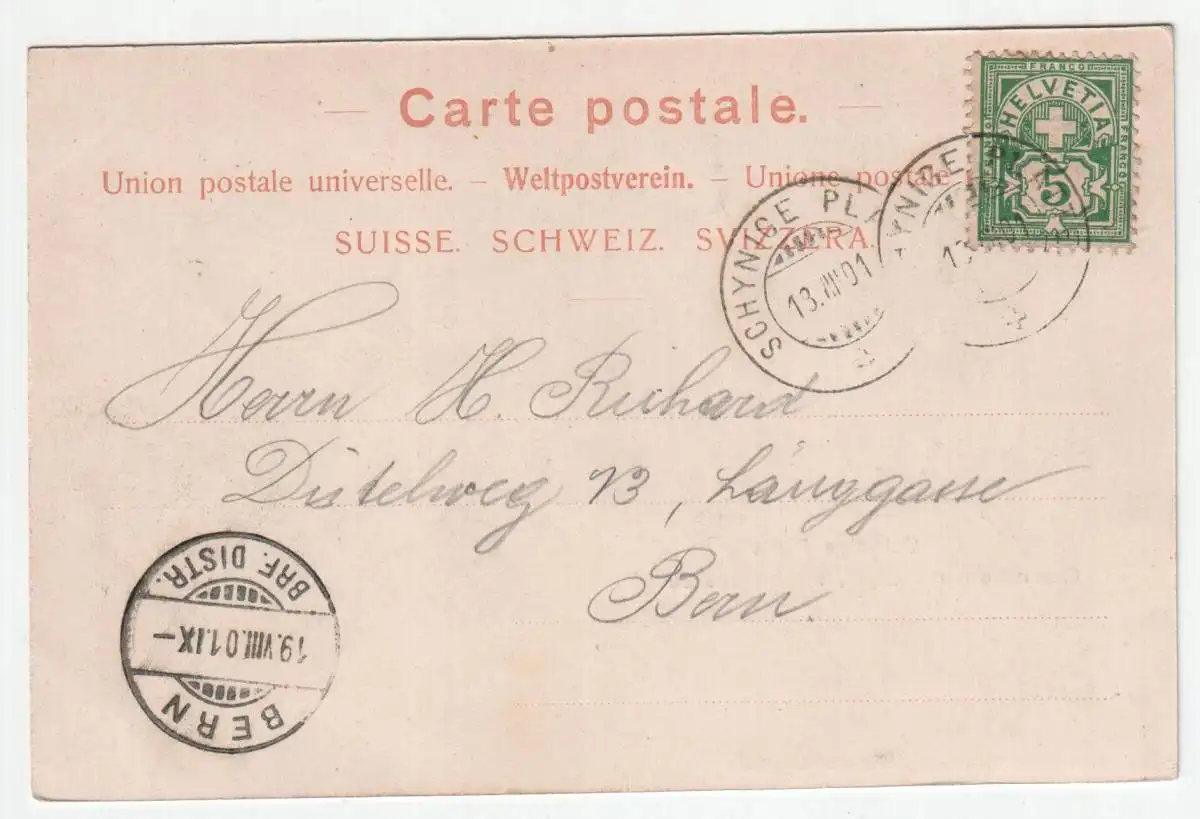 Carte postale.
Union postale universelle. – Weltpostverein. – Unione postale
SUISSE. SCHWEIZ. SVIZZERA.
FRANCO
HELVETIA
FRANCO
5
SCHYNIGE PLA
13.VIII 01
YNIGE PL
13
Herrn H. Richard
Distelweg 13, Länggasse
Bern.
BRF. DISTR.
19.VIII.01.IX–
BERN